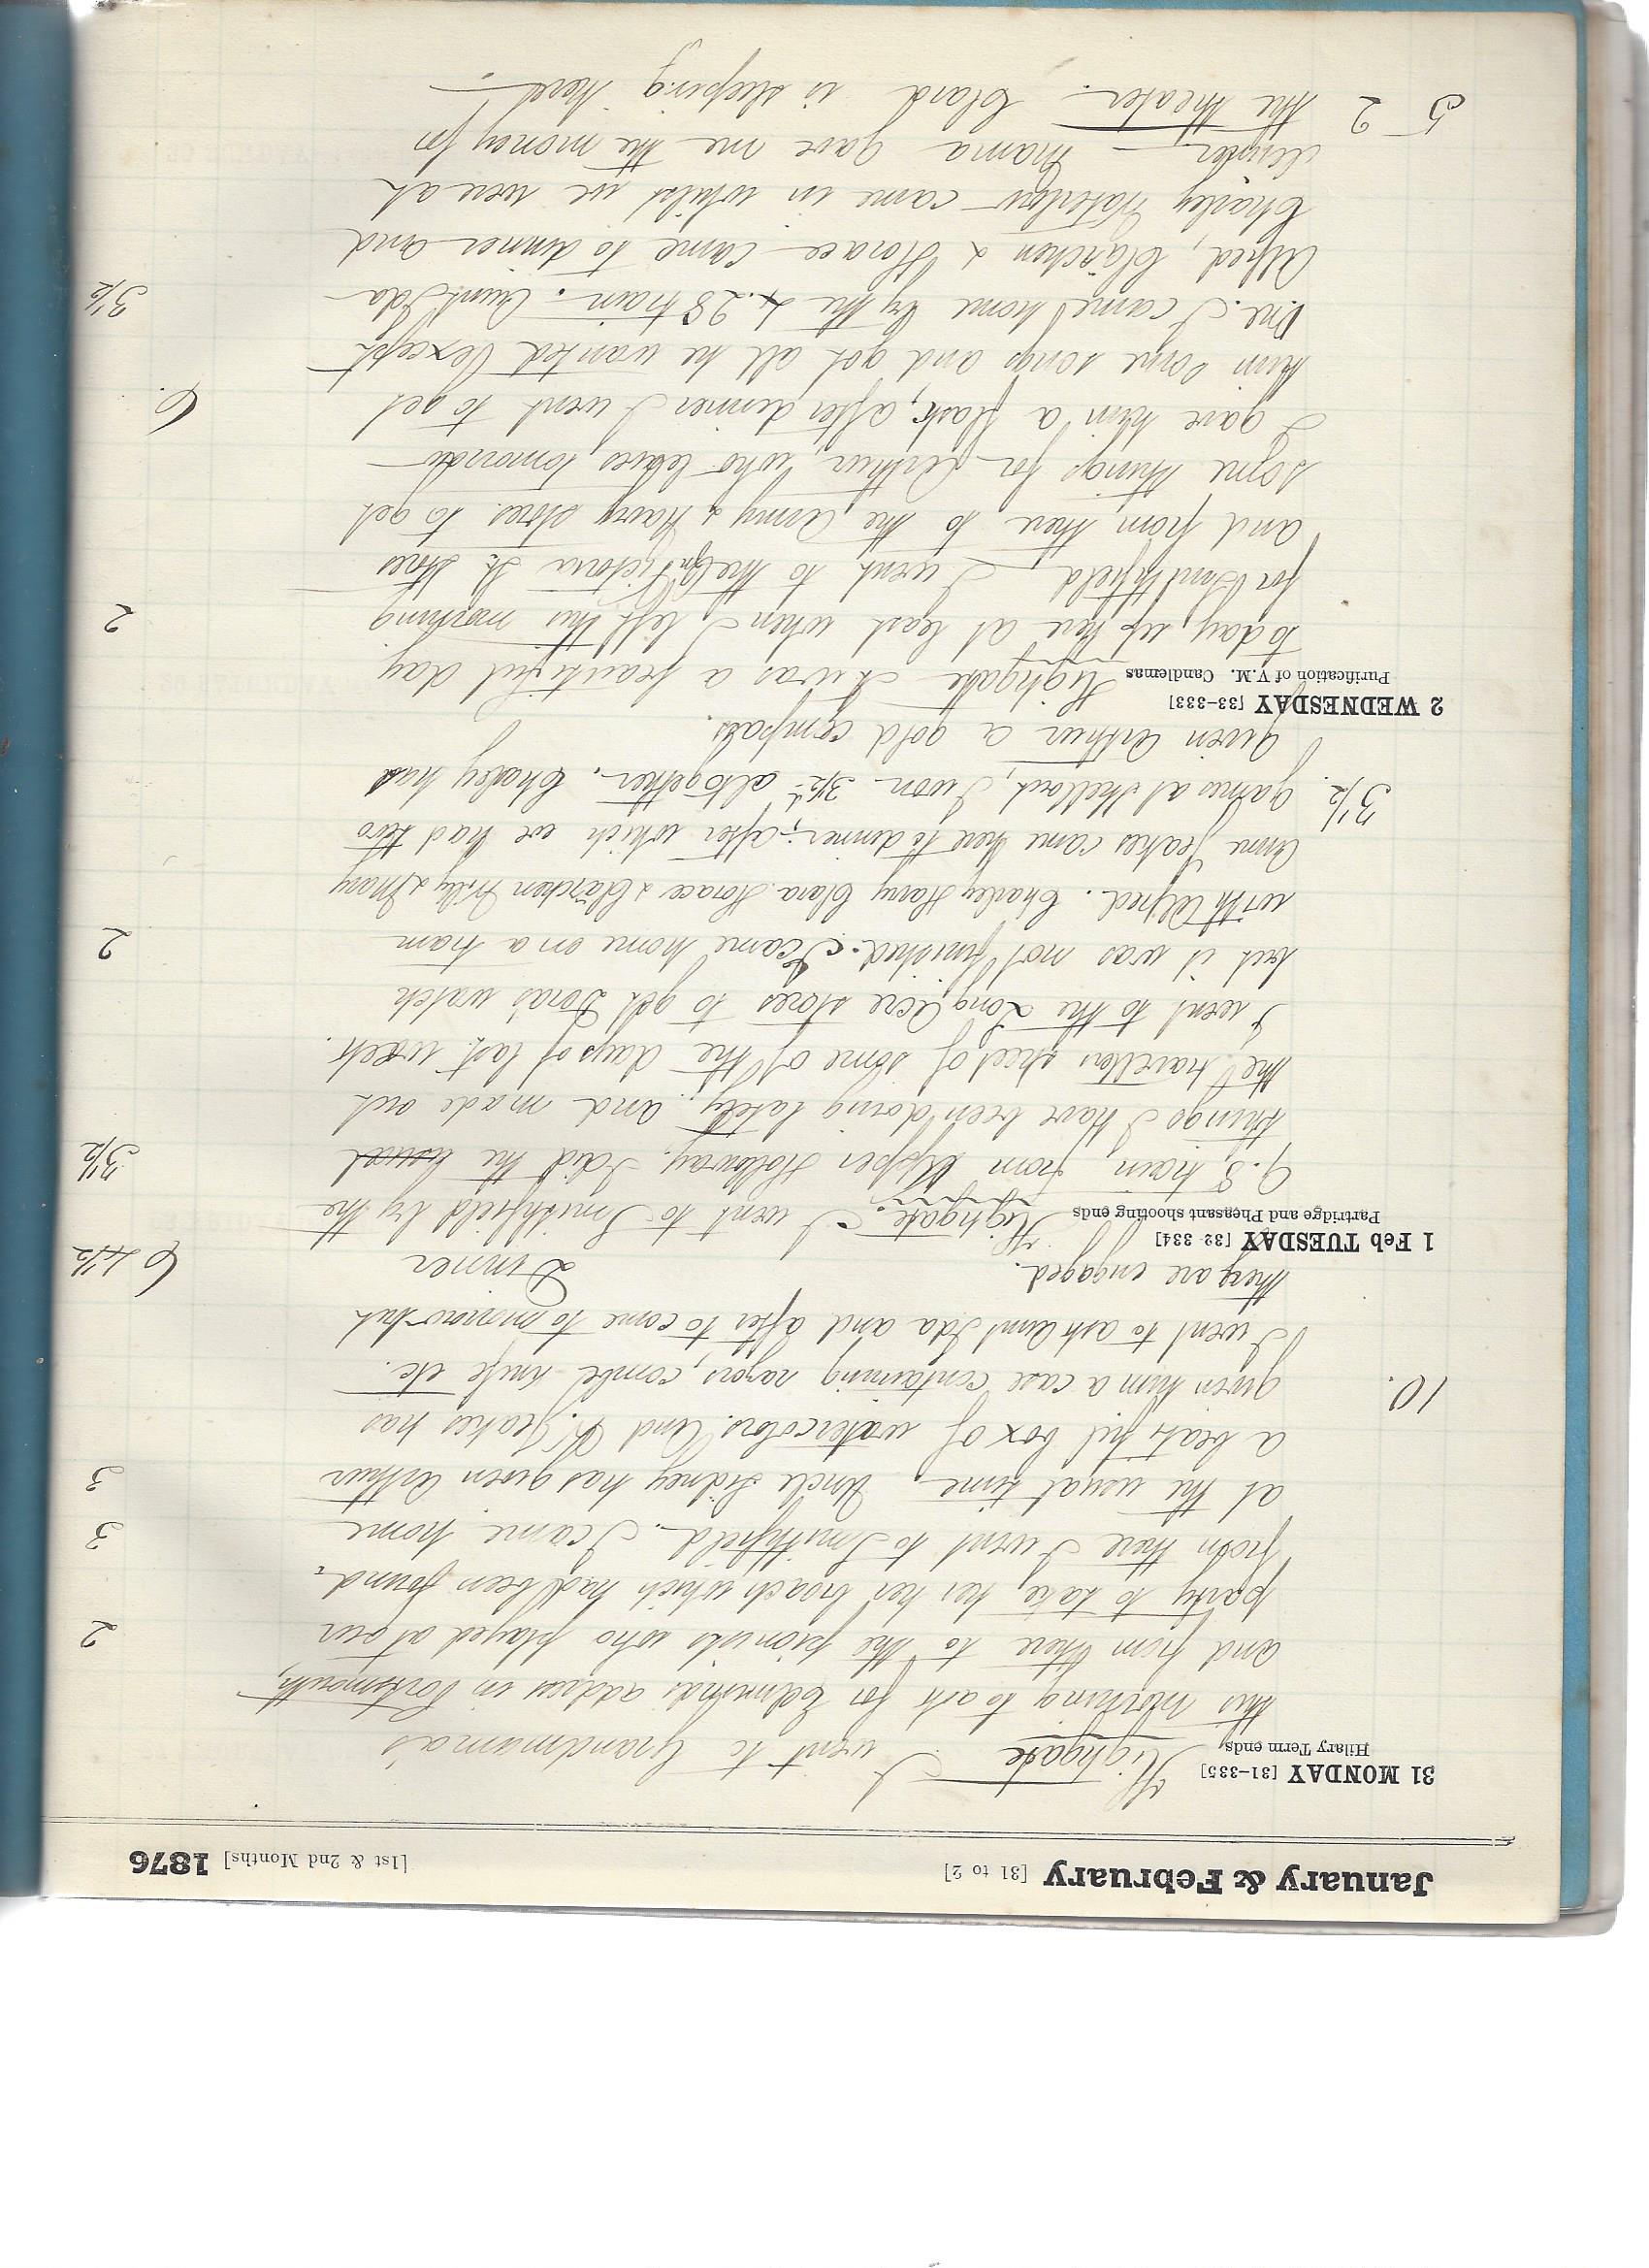 January & February [31 to 2] [1st & 2nd Months] 1876
31 MONDAY [31-335]
Hilary Term ends
Highgate I went to Grandmama's
this morning to ask for Edmund's address in Portsmouth,
and from there to the pianists who played at our 2
party to take her her broach which had been found.
from there I went to Smithfield. I came home 3
at the usual time. Uncle Sidney has given Arthur 3
a beatiful box of watercolors. And Dr. Jeakes has
10. given him a case containing razors, comb knife etc.
I went to ask Aunt Ida and after to come to morrow but
they are engaged. Dinner 6 4½
1 Feb TUESDAY [32-334]
Partridge and Pheasant shooting ends
Highgate. I went to Smithfield by the
9.8 train from Upper Holloway. I did the usual 3½
things I have been doing lately. and made out
the travellers sheet of some of the days of last week.
I went to the Long Acre stores to get Dora's watch
but it was not finished. I came home on a tram 2
with Alfred. Charley Harry Clara Horace & Clärchen Willy & Mary
Anne Jeakes came here to dinner, after which we had two
3½. games at Nellard, I won 3½d altogether. Charley has
given Arthur a gold compass.
2 WEDNESDAY [33-333]
Purification of V.M. Candlemas
Highgate It was a beautiful day
to day, up here at least when I left this morning 2
for Smithfield I went to the Qn Victoria St Stores
and from there to the Army & Navy stores to get
some things for Arthur, who leaves tomorrow
I gave him a flask, after dinner I went to get 6.
him some songs and got all he wanted (except
one. I came home by the 4.28 train. Aunt Ida 3½
Alfred, Clärchen & Horace came to dinner and
Charley Waterlow came in whilst we were at
dinner Mama gave me the money for
5 2 the theater. Clara is sleeping here.